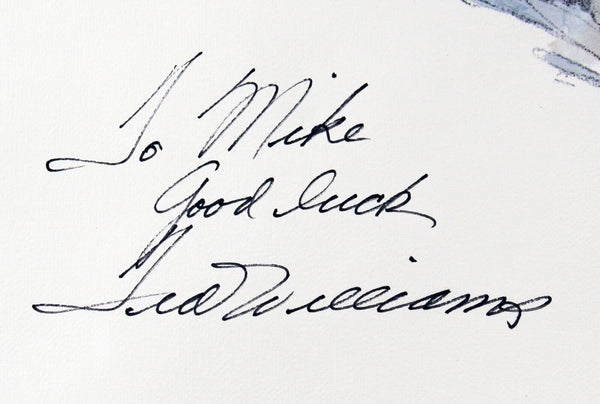 To Mike
Good luck
Ted Williams